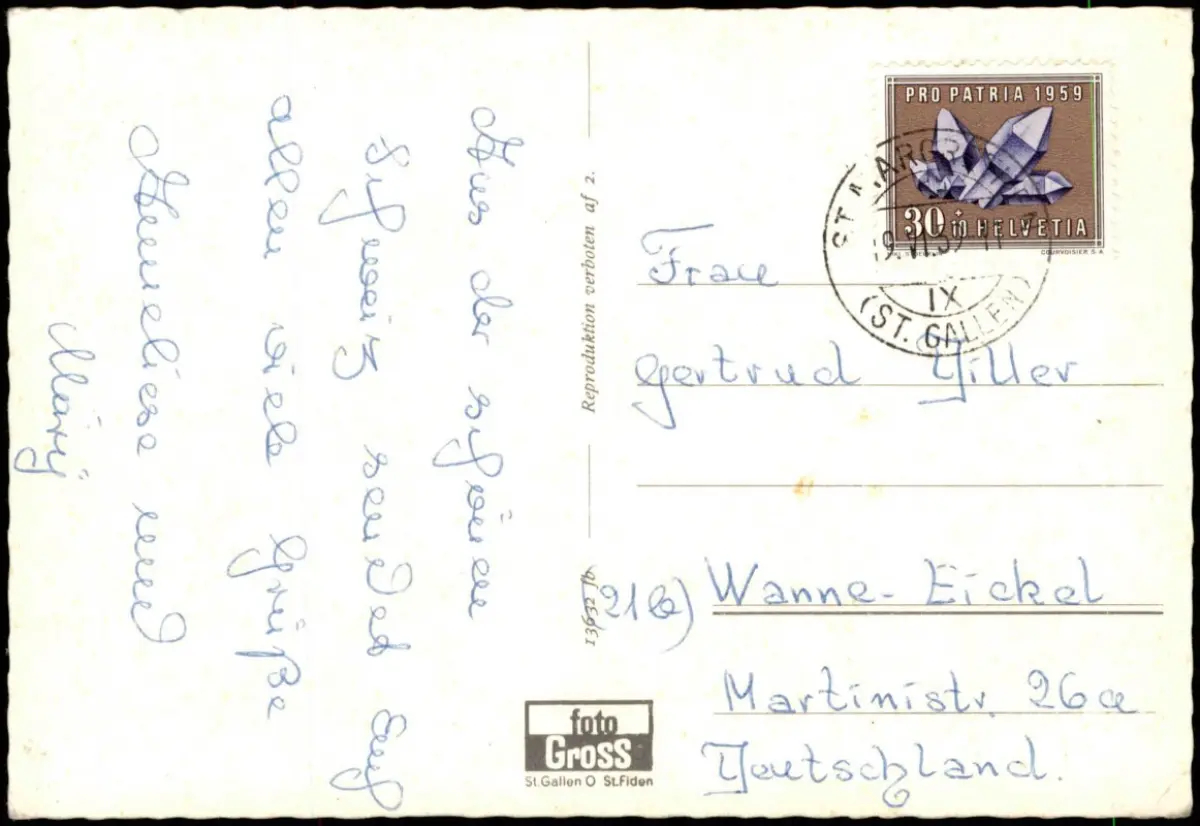 Aus der schönen
Schweiz sendet Euch
allen viele Grüße
Anneliese und
Reproduktion verboten af 2.
13632 fb
foto
Gross
St.Gallen O St.Fiden
PRO PATRIA 1959
30 + 10 HELVETIA
COURVOISIER S.A.
IX
(ST. GALLEN)
Frau
Gertrud Hiller
(21b) Wanne-Eickel
Martinistr. 26a
Deutschland.